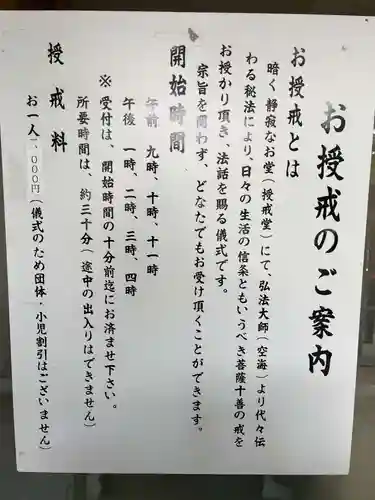 お授戒のご案内
お授戒とは
暗く静寂なお堂(授戒堂)にて、弘法大師(空海)より代々伝
わる秘法により、日々の生活の信条ともいうべき菩薩十善の戒を
お授かり頂き、法話を賜る儀式です。
宗旨を問わず、どなたでもお受け頂くことができます。
開始時間
午前 九時、十時、十一時
午後 一時、二時、三時、四時
※受付は、開始時間の十分前迄にお済ませ下さい。
所要時間は、約三十分(途中の出入りはできません)
授戒料
お一人 、000円(儀式のため団体・小児割引はございません)